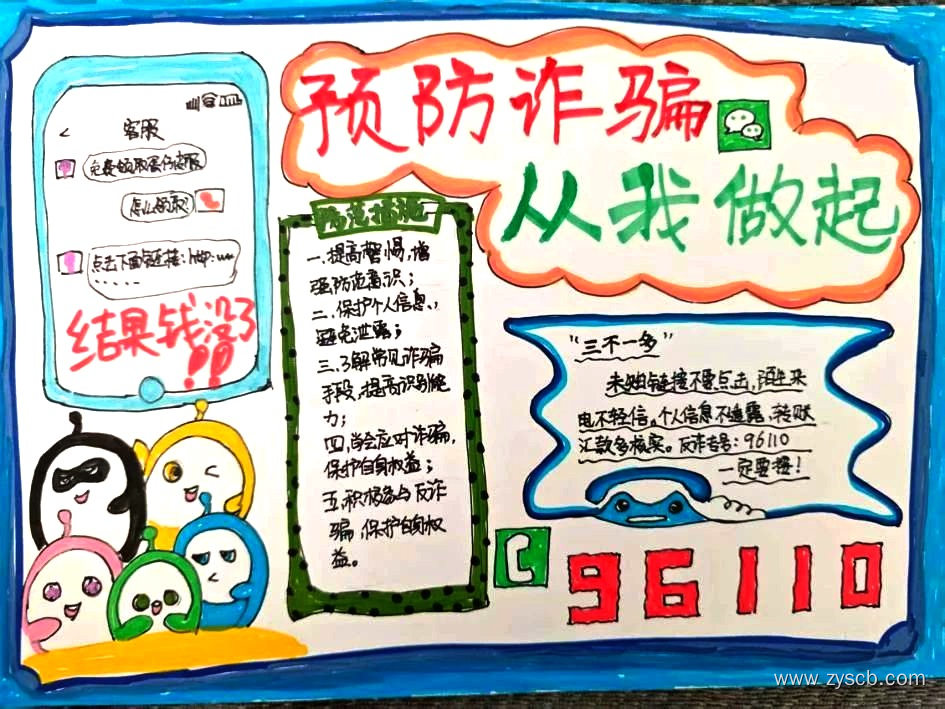 预防诈骗
从我做起
<
客服
免费领取
怎么领取?
点击下面链接:http:ww
......
结果钱没了!!!
防范措施
一、提高警惕,增
强防范意识;
二、保护个人信息、
避免泄露;
三、了解常见诈骗
手段,提高识别能
力;
四、学会应对诈骗,
保护自身权益;
五、积极参与反诈
骗,保护自身权
益。
“三不一多”
未知链接不要点击,陌生来
电不轻信。个人信息不透露,转账
汇款多核实。反诈专号:96110
一定要接!
96110
www.zyscb.com